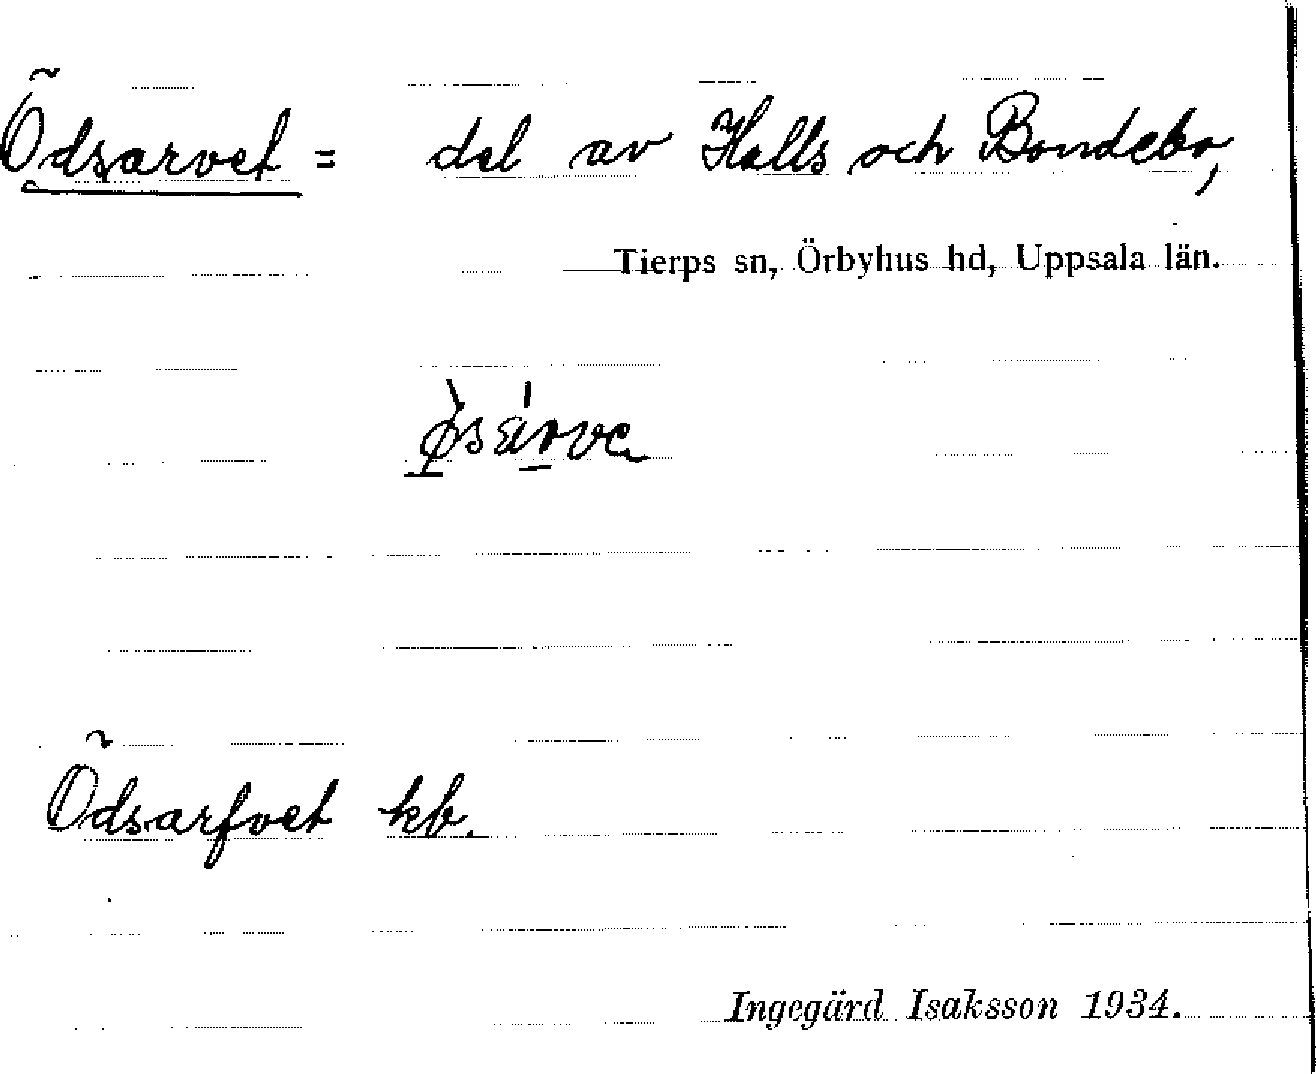 Ödsarvet = del av Halls och Bondebo,
Tierps sn, Örbyhus hd, Uppsala län.
Ödsarfvet kb.
Ingegärd Isaksson 1934.